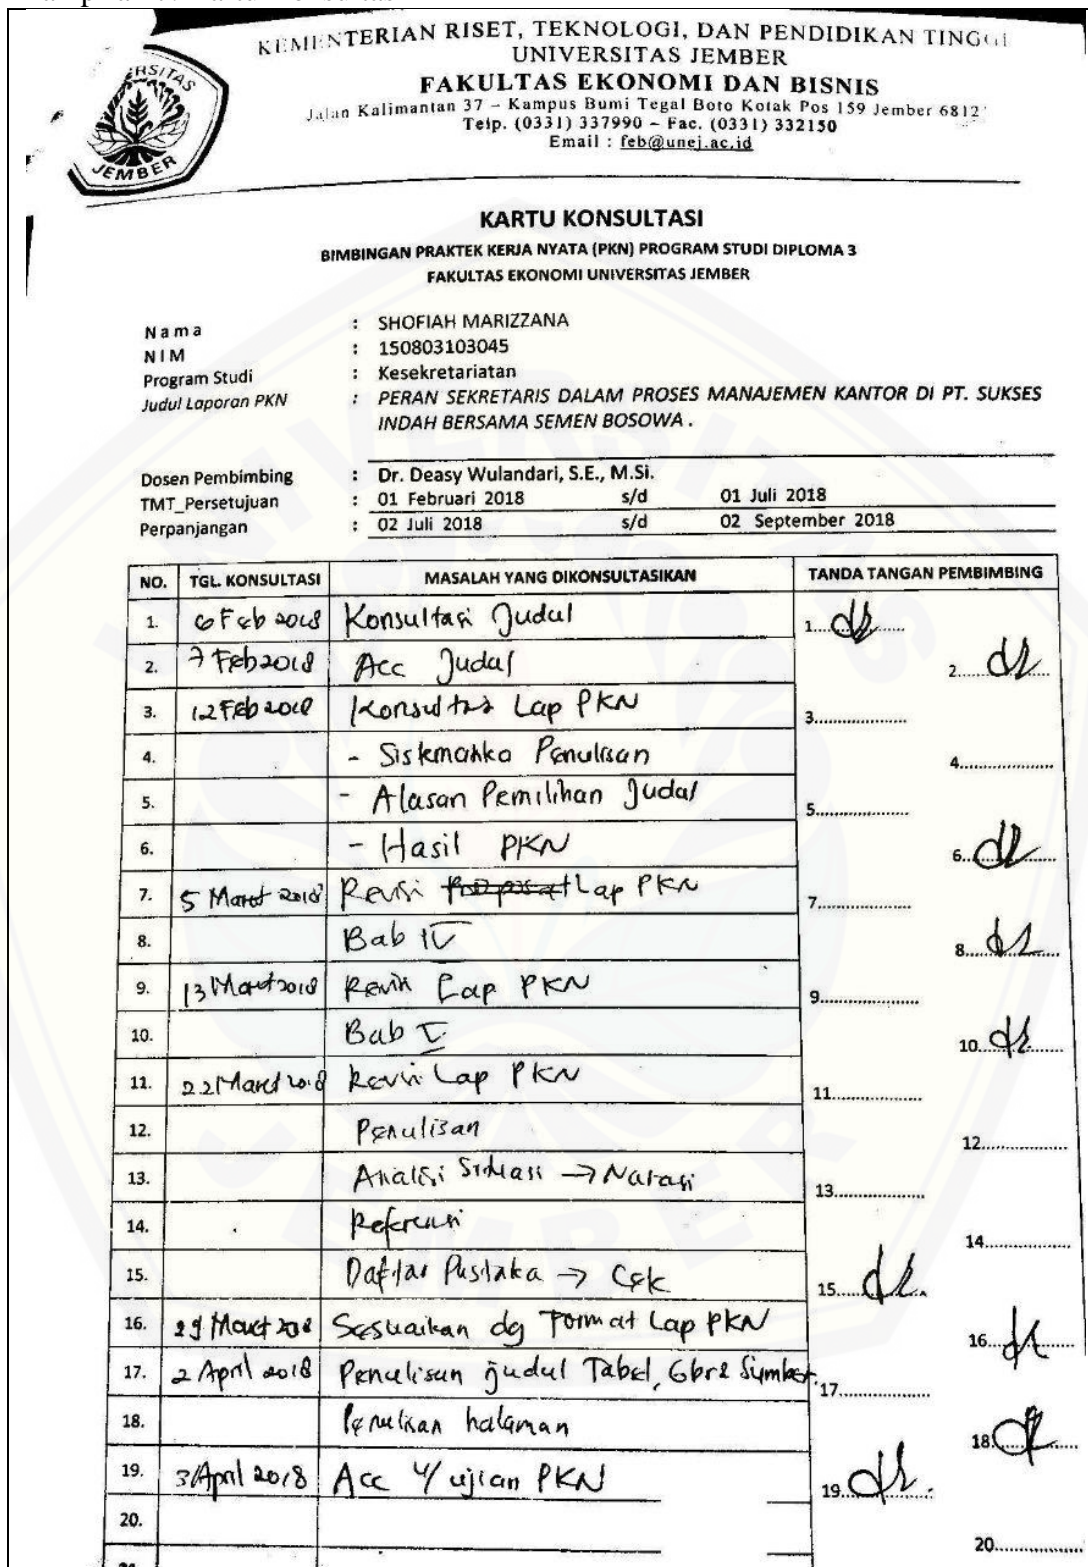 KEMENTERIAN RISET, TEKNOLOGI, DAN PENDIDIKAN TINGGI
UNIVERSITAS JEMBER
FAKULTAS EKONOMI DAN BISNIS
Jalan Kalimantan 37 – Kampus Bumi Tegal Boto Kotak Pos 159 Jember 6812
Telp. (0331) 337990 – Fac. (0331) 332150
Email : feb@unej.ac.id
JEMBER
KARTU KONSULTASI
BIMBINGAN PRAKTEK KERJA NYATA (PKN) PROGRAM STUDI DIPLOMA 3
FAKULTAS EKONOMI UNIVERSITAS JEMBER
Nama : SHOFIAH MARIZZANA
NIM : 150803103045
Program Studi : Kesekretariatan
Judul Laporan PKN : PERAN SEKRETARIS DALAM PROSES MANAJEMEN KANTOR DI PT. SUKSES
INDAH BERSAMA SEMEN BOSOWA .
Dosen Pembimbing : Dr. Deasy Wulandari, S.E., M.Si.
TMT_Persetujuan : 01 Februari 2018 s/d 01 Juli 2018
Perpanjangan : 02 Juli 2018 s/d 02 September 2018
NO. TGL. KONSULTASI MASALAH YANG DIKONSULTASIKAN TANDA TANGAN PEMBIMBING
1. 6 Feb 2018 Konsultasi Judul 1.
2. 7 Feb 2018 Acc Judul 2.
3. 12 Feb 2018 Konsultasi Lap PKN 3.
4. - Sistematika Penulisan 4.
5. - Alasan Pemilihan Judul 5.
6. - Hasil PKN 6.
7. 5 Maret 2018 Revisi Lap PKN 7.
8. Bab IV 8.
9. 13 Maret 2018 Revisi Lap PKN 9.
10. Bab V 10.
11. 22 Maret 2018 Revisi Lap PKN 11.
12. Penulisan 12.
13. Analisi Situasi → Narasi 13.
14. Referensi 14.
15. Daftar Pustaka → Cek 15.
16. 29 Maret 2018 Sesuaikan dg Format Lap PKN 16.
17. 2 April 2018 Penulisan judul Tabel, Gbr & Sumber. 17.
18. Penulisan halaman 18.
19. 3 April 2018 Acc u/ ujian PKN 19.
20. 20.